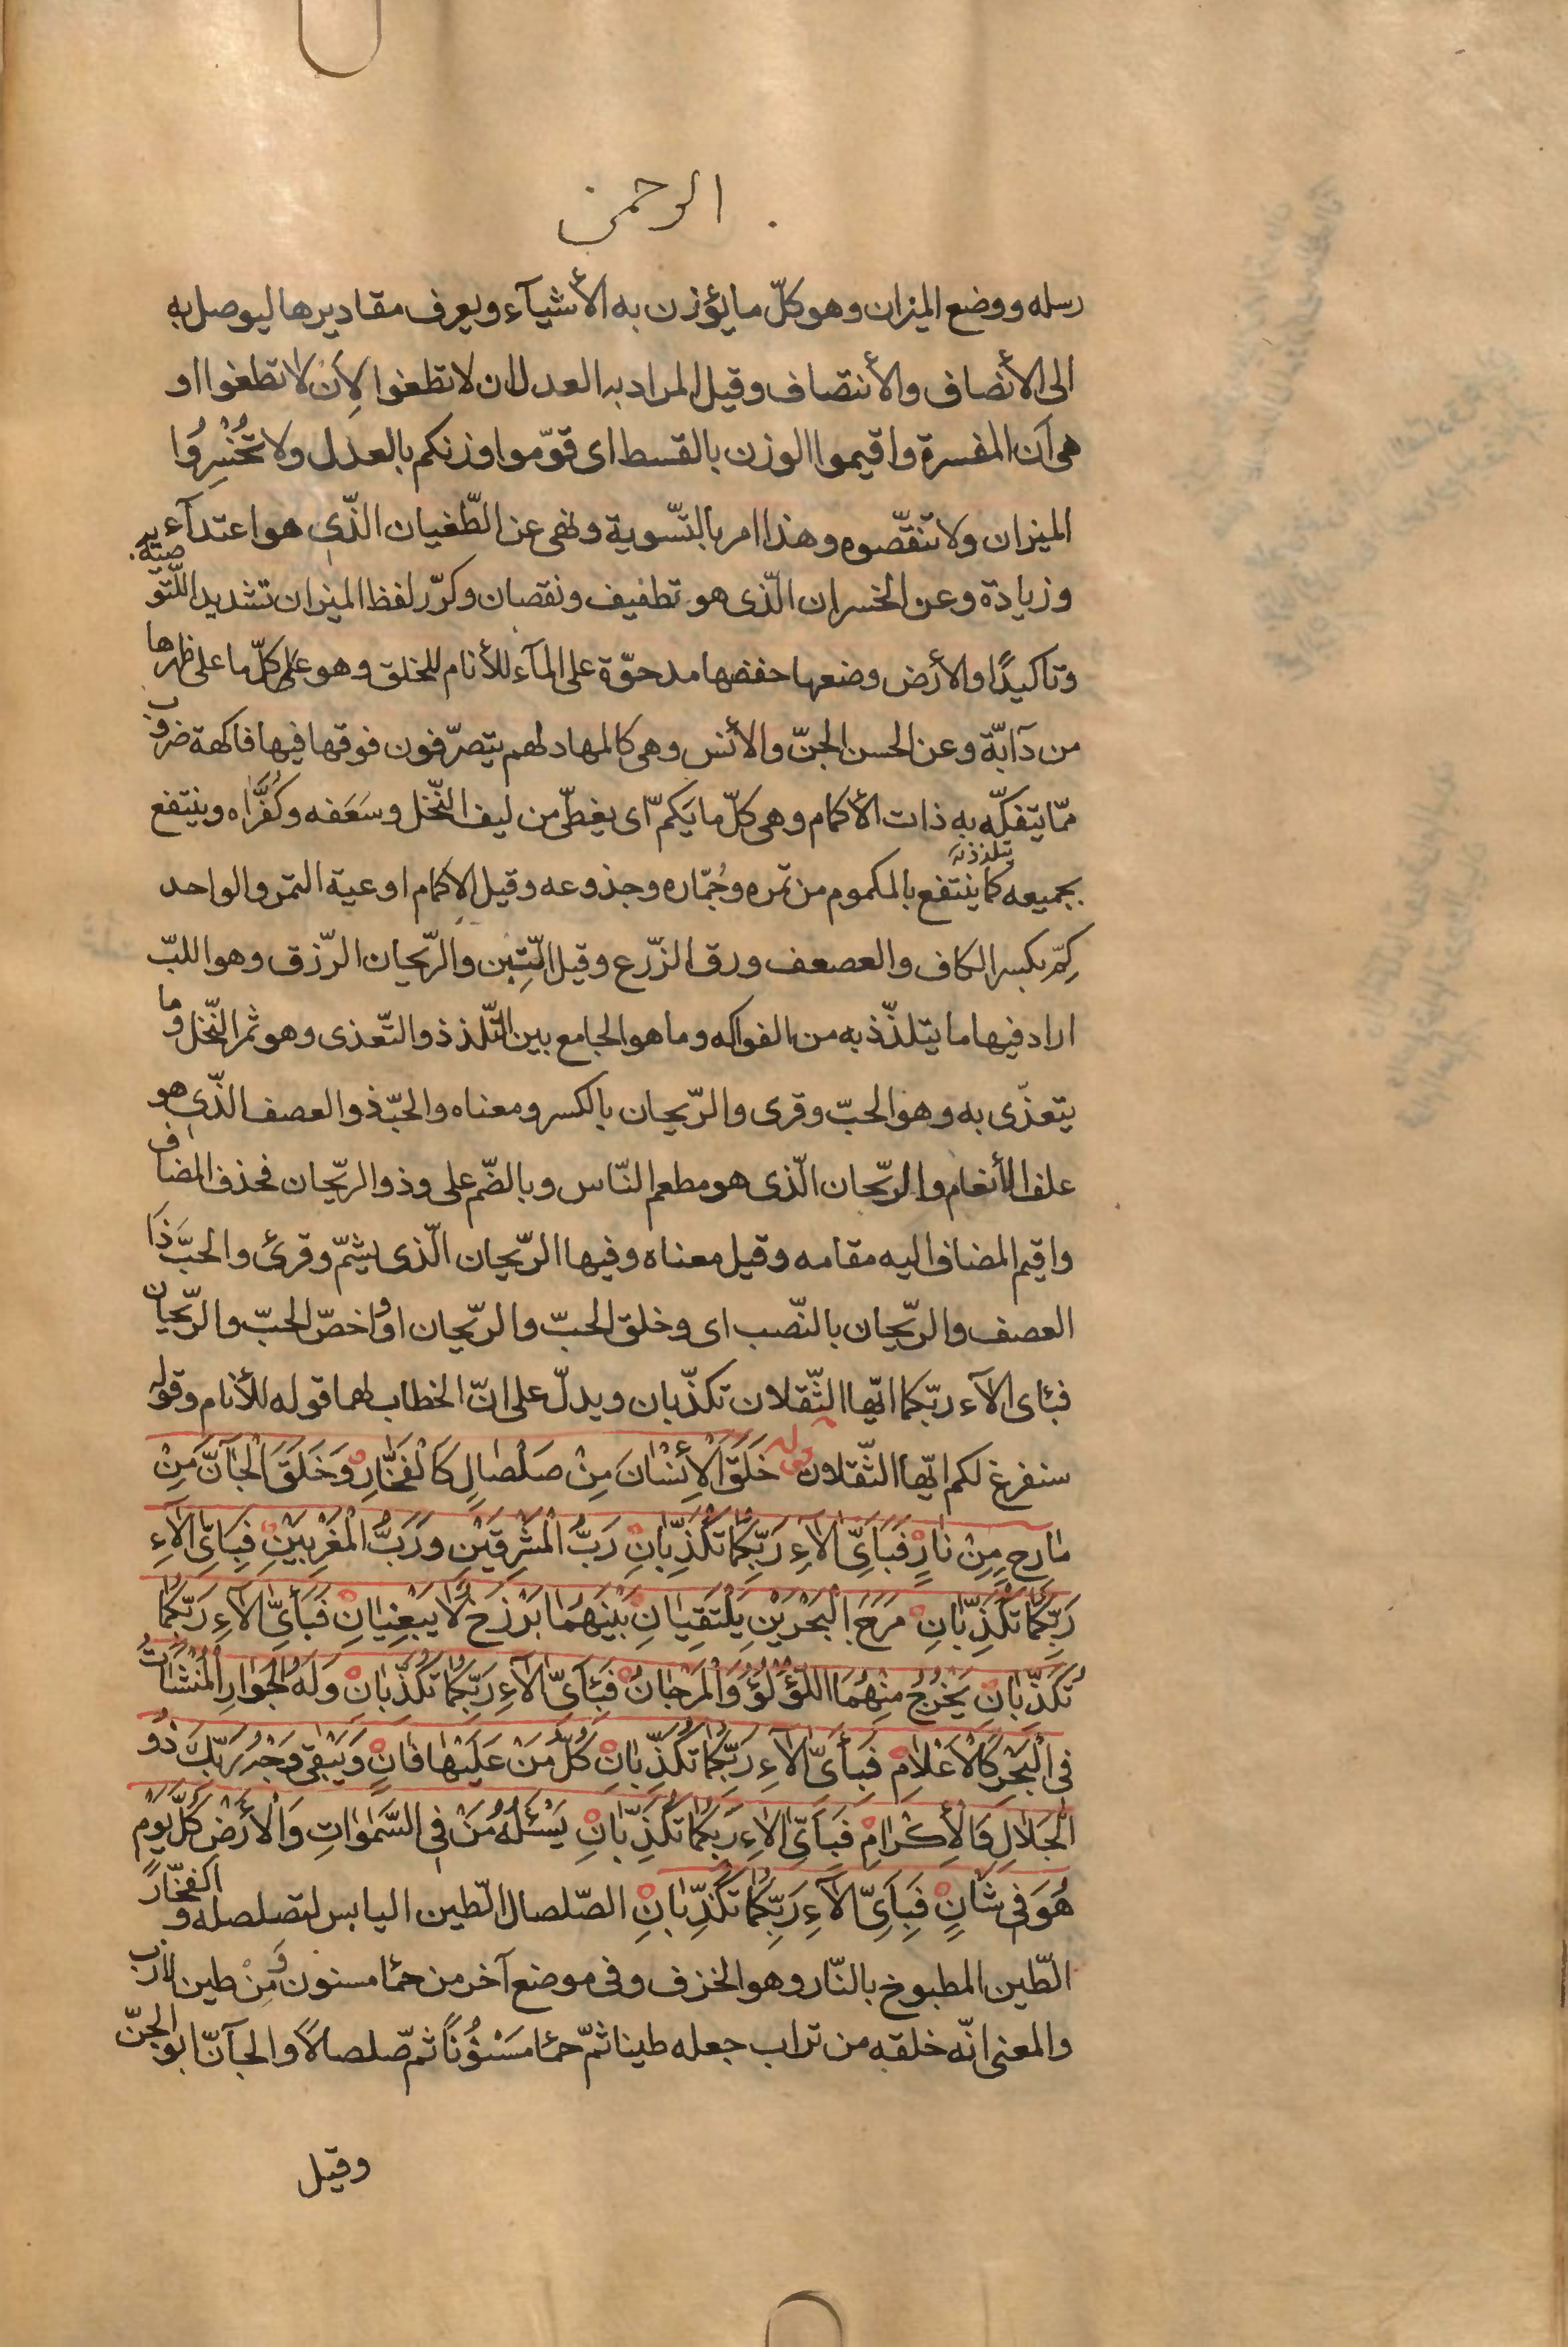 الرحمن
رسله ووضع الميزان وهو كلّ ما يؤزن به الأشيآء ويعرف مقاديرها ليوصل به
الى الأنصاف والأنتصاف وقيل المراد به العدل ان لا تطغوا لِأَن لا تطغوا او
هى اَن المفسرة واقيموا الوزن بالقسط اى قوّموا وزنكم بالعدل ولا تُخْسِرُوا
الميزان ولا تنقّصوه وهذا امر بالتّسوية ونهى عن الطّغيان الذّى هو اعتدآء
وزيادة وعن الخسران الّذى هو تطفيف ونقصان وكرّر لفظ الميزان تشديدا للّتوصية به
وتاكيدًا والأرض وضعها خفضها مدحوّة على المآء للأنام للخلق وهو على كلّ ما على ظهرها
من دآبّة وعن الحسن الجنّ والأنس وهى كالمهاد لهم يتصرّفون فوقها فيها فاكهة ضروب
ممّا يتفكّه به ذات الأكمام وهى كلّ ما يَكمّ اى يغطّى من ليف النّخل وسَعَفه وكُفُرَّاه وينتفع
يتلذذ به
بجميعه كما ينتفع بالمكموم من ثمره وجُمّاره وجذوعه وقيل الاكمام اوعية التمر والواحد
كِمّ بكسر الكاف والعصعف ورق الزّرع وقيل التّبِن والرّيحان الرّزق وهو اللبّ
اراد فيها ما يتلذّذ به من الفواكه وما هو الجامع بين التّلذذ والتّغذى وهو ثمر النّخل وما
يتغذّى به وهو الحبّ وقرى والرّيحان بالكسر ومعناه والحبّ ذو العصف الذّى هو
علف الأنعام والرّيحان الّذى هو مطعم النّاس وبالضّم على وذو الريّحان فحذف المضاف
واقيم المضاف اليه مقامه وقيل معناه وفيها الرّيحان الّذى يشمّ وقرئ والحبَّ ذَا
العصف والريّحان بالنّصب اى وخلق الحبّ والريّحان او واخصّ الحبّ والريّحان
فبئاى الآء ربّكما ايّها الثّقلان تكذّبان ويدلّ على انّ الخطاب لهما قوله للأنام وقوله
سنفرغ لكم ايّها الثّقلان قوله خَلَقَ الأِنْسٰانَ مِنْ صَلْصٰالٍ كَالْفَخّٰارِ وَخَلَقَ الْجٰانَّ مِنْ
مٰارِجٍ مِنْ نٰارٍ فَبِاَىِّ اٰلآءِ رَبِّكُمٰا تُكَذِّبٰانِ رَبُّ الْمَشْرِقَيْنِ وَرَبُّ الْمَغْرِبَيْنِ فَبِاَىِّ اٰلآءِ
رَبِّكُمٰا تُكَذِّبٰانِ مَرَجَ الْبَحْرَيْنِ يَلْتَقِيٰانِ بَيْنَهُمٰا بَرْزَخٌ لٰا يَبْغِيٰانِ فَبِأَىِّ اٰلآءِ رَبِّكُمٰا
تُكَذِّبٰانِ يَخْرُجُ مِنْهُمَا اللُّؤْلُؤُ وَالْمَرْجٰانُ فَبِئَاَىِّ اٰلآءِ رَبِّكُمٰا تُكَذِّبٰانِ وَلَهُ الْجَوٰارِ الْمُنْشَاٰتُ
فِى الْبَحْرِ كَالْاَعْلٰامِ فَبِأَىِّ اٰلآءِ رَبِّكُمٰا تُكَذِّبٰانِ كُلُّ مَنْ عَلَيْهٰا فٰانٍ وَيَبْقٰى وَجْهُ رَبِّكَ ذُو
الْجَلٰالِ وَالْاِكْرٰامِ فَبِاَىِّ اٰلآءِ رَبِّكُمٰا تُكَذِّبٰانِ يَسْئَلُهُ مَنْ فِى السَّمٰوٰاتِ وَالْأَرْضِ كُلَّ يَوْمٍ
هُوَ فِى شَانٍ فَبِاَىِّ اٰلآءِ رَبِّكُمٰا تُكَذِّبٰانِ الصّلصال الّطين اليابس لتصلصله والفخّار
الطّين المطبوخ بالنّار وهو الخزف وفى موضع آخر من حمٔا مسنون ومِنْ طين لازب
والمعنى انّه خلقه من تراب جعله طينا ثمّ حمٔا مَسْنُوْنًا ثمّ صّلصالًا والجآنّ ابو الجنّ
وقيل